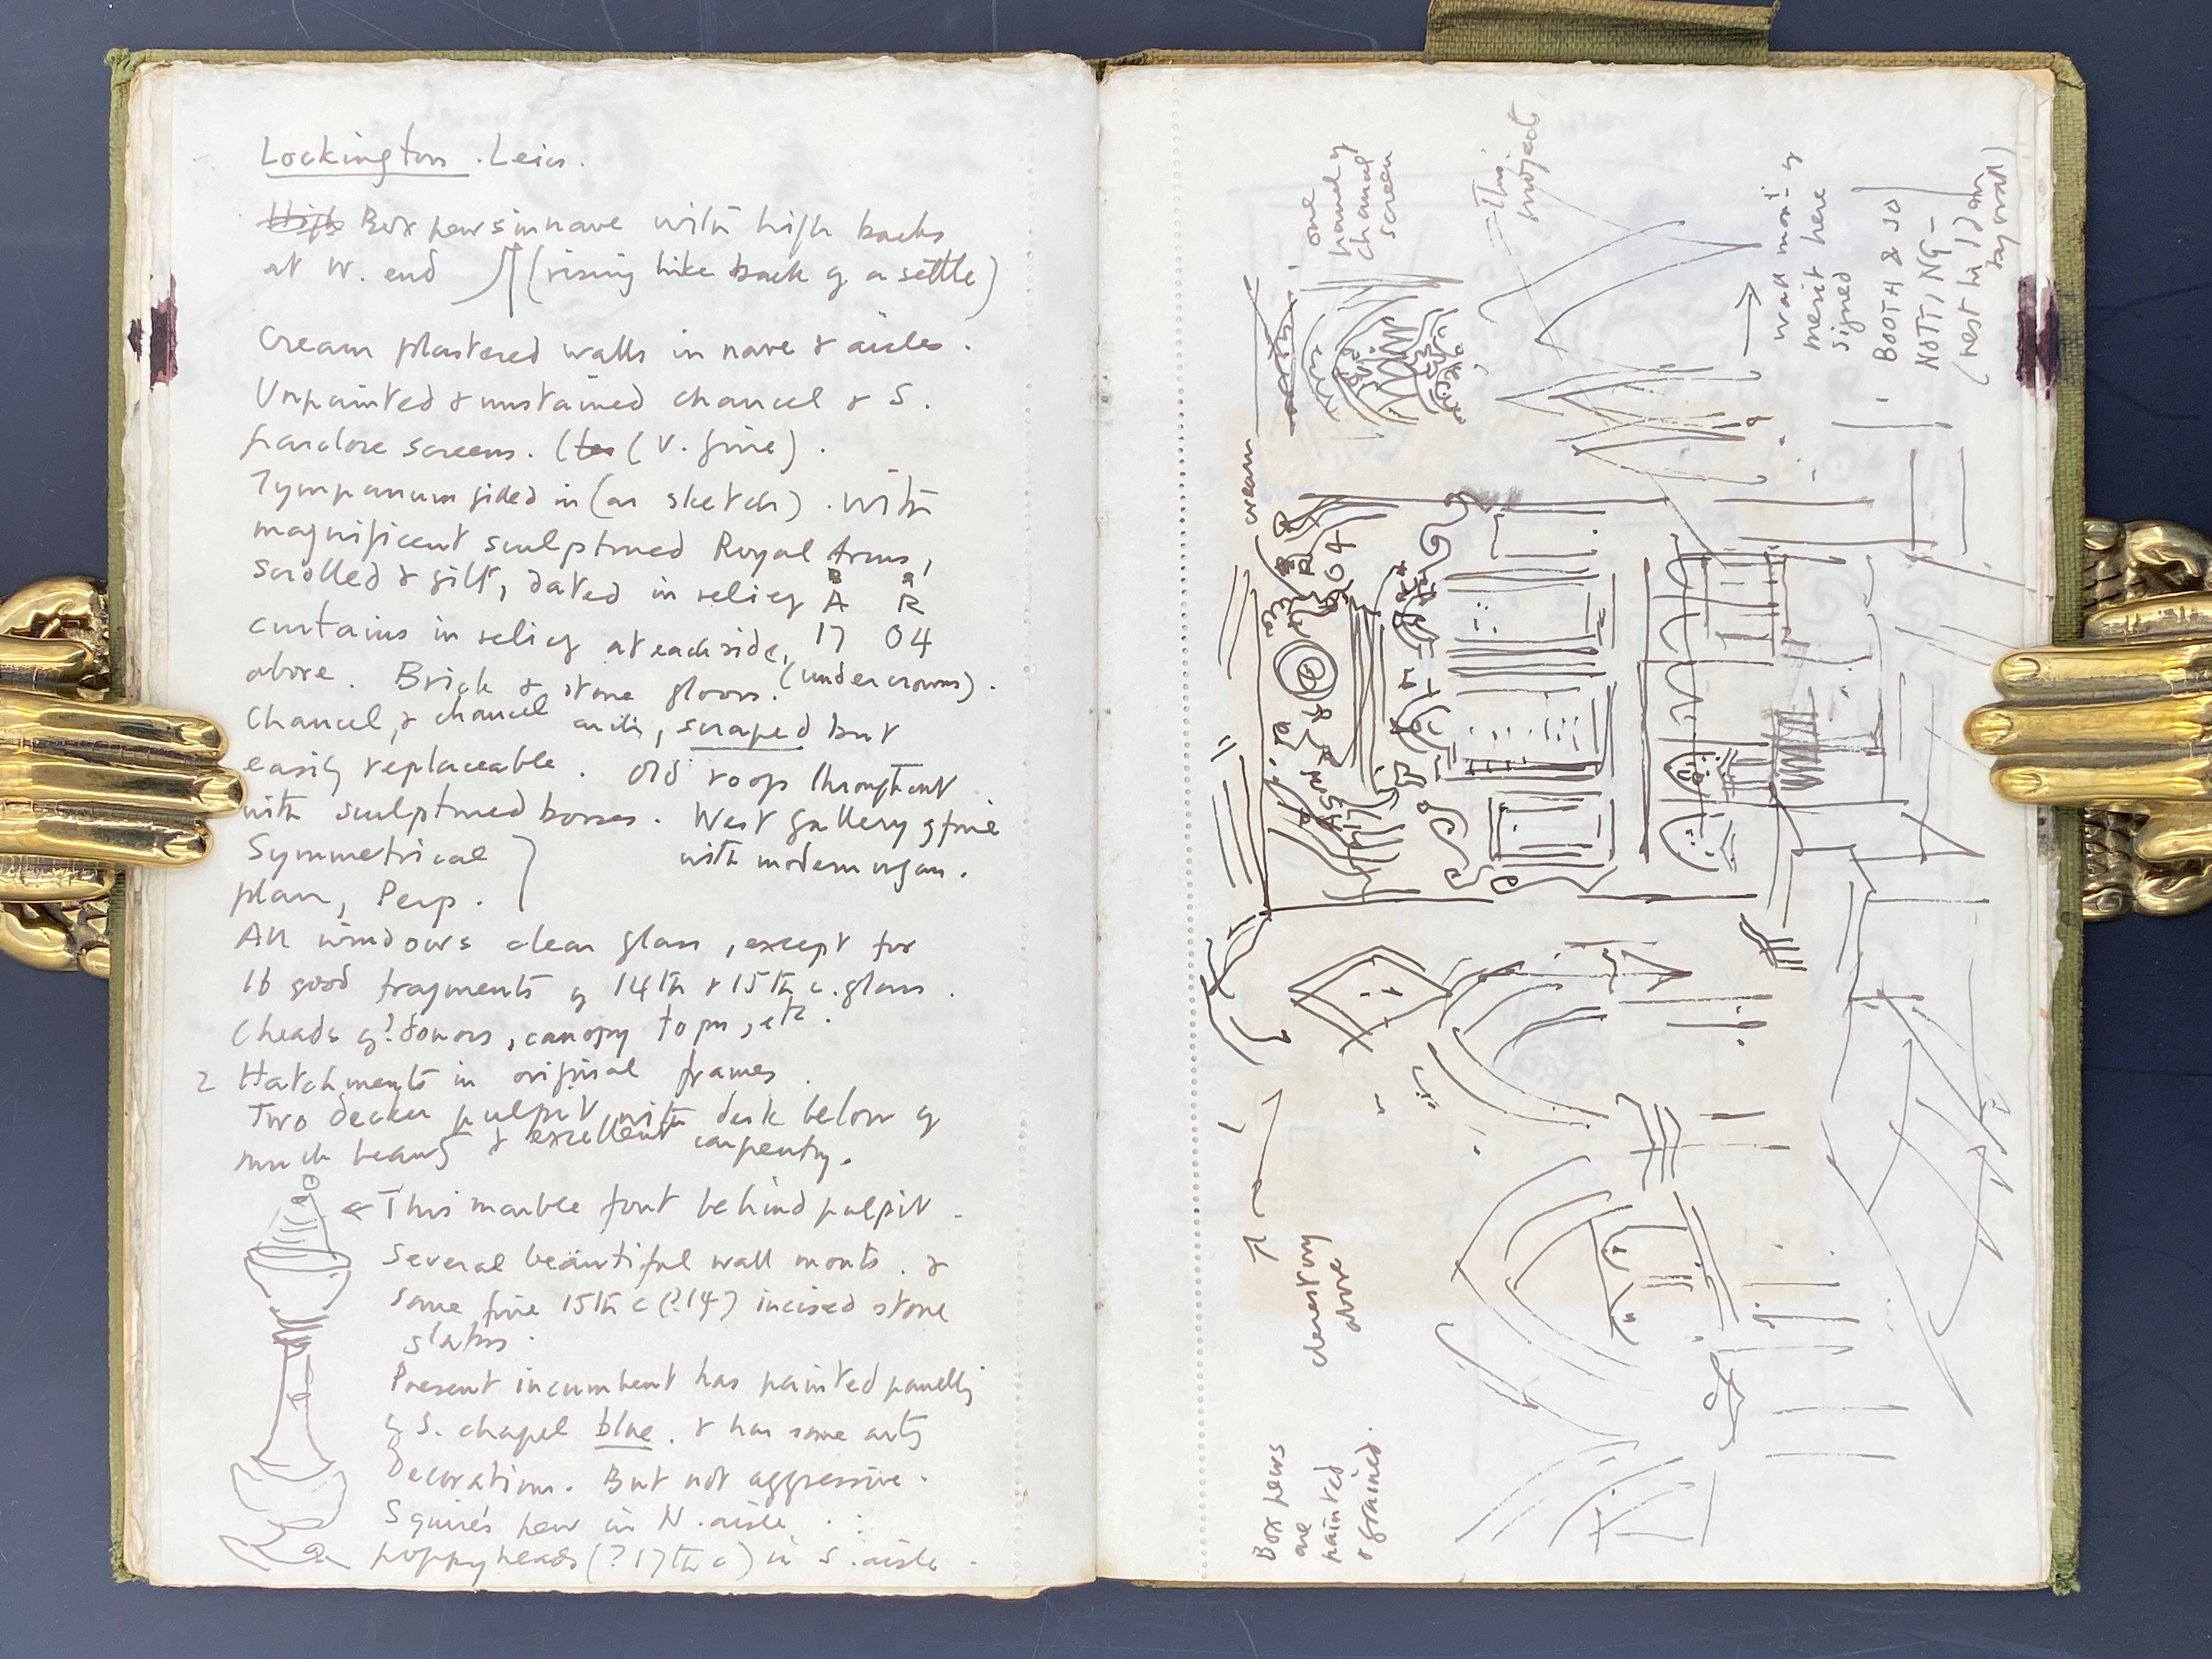 Lockington. Leics.
High Box pews in nave with high backs
at W. end (rising like back of a settle)
Cream plastered walls in nave & aisles.
Unpainted & unstained chancel & S.
parclose screens. (v. fine).
Tympanum filled in (as sketch). With
magnificent sculptured Royal Arms,
scrolled & gilt, dated in relief A R
curtains in relief at each side, 17 04
above. Brick & stone floors. (under crowns).
Chancel, & chancel arch, scraped but
easily replaceable. Old roofs throughout
with sculptured bosses. West gallery fine
Symmetrical with modern organ.
plan, Perp.
All windows clear glass, except for
16 good fragments of 14th & 15th c. glass.
(heads of ? donors, canopy tops, etc.
2 Hatchments in original frames.
Two decker pulpit with desk below of
much beauty & excellent carpentry.
This marble font behind pulpit.
Several beautiful wall monts. &
some fine 15th c (? 14) incised stone
slabs.
Present incumbent has painted panelling
of S. chapel blue. & has some arty
decorations. But not aggressive.
Squire's pew in N. aisle.
poppyheads (? 17th c) in S. aisle.
one
panel of
chancel
screen
This
projects
cream
wall mont. of
merit here
signed
BOOTH &
NOTTING-
(rest hid
by wall)
clerestory
above
Box pews
are
painted
& grained.